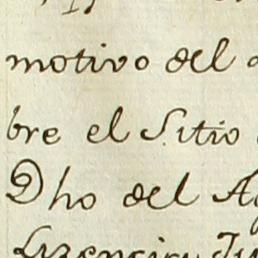 motivo del
bre el Sitio
Dho del